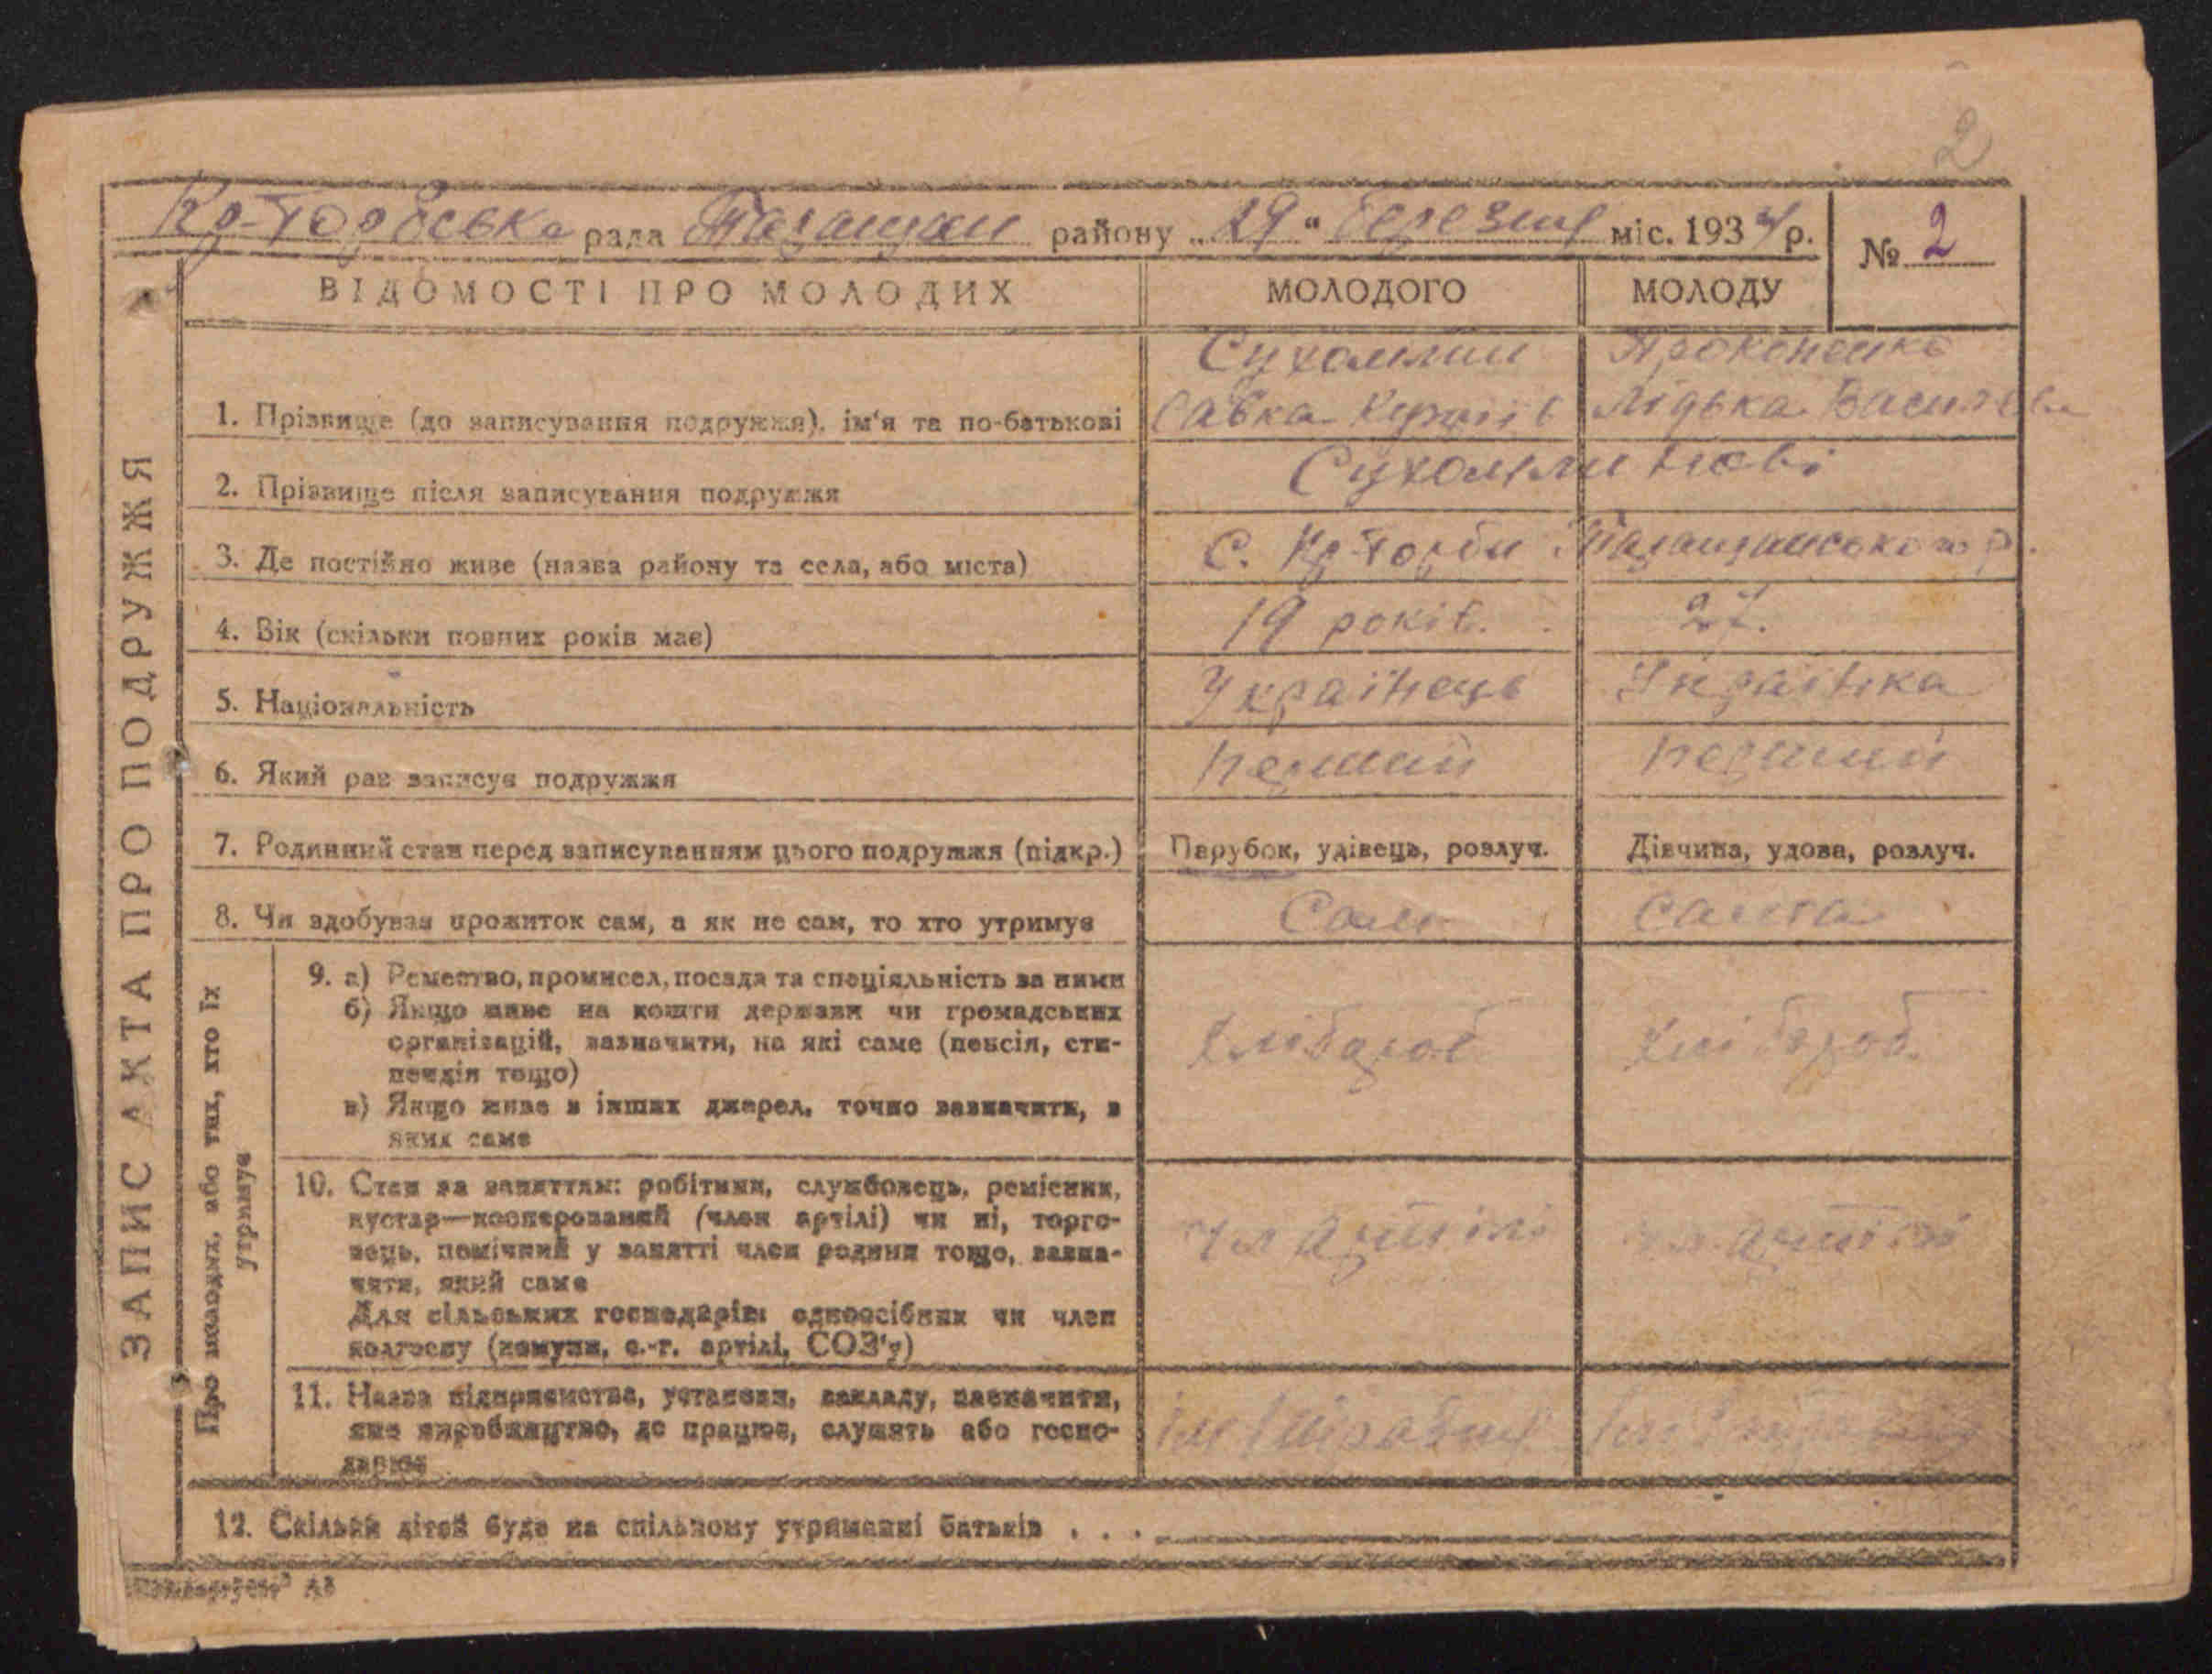 2
Кр-Торбська рада Таращан району „29“ березня міс. 1934 р.
№ 2
ВІДОМОСТІ ПРО МОЛОДИХ
МОЛОДОГО
МОЛОДУ
ЗАПИС АКТА ПРО ПОДРУЖЖЯ
Сухомлин
Прокопенко
1. Прізвище (до записування подружжя), ім'я та по-батькові
Савка
Лідька Василева
2. Прізвище після записування подружжя
Сухомлинові
3. Де постійно живе (назва району та села, або міста)
С. Кр-Торби Таращанського р.
4. Вік (скільки повних років має)
19 років.
27.
5. Національність
Українець
Українка
6. Який раз записує подружжя
перший
перший
7. Родинний стан перед записуванням цього подружжя (підкр.)
Парубок, удівець, розлуч.
Дівчина, удова, розлуч.
8. Чи здобував прожиток сам, а як не сам, то хто утримує
Сам
сама
Про молодих, або тих, хто їх
утримує
9. а) Ремество, промисел, посада та спеціяльність за ними
б) Якщо живе на кошти держави чи громадських
організацій, зазначити, на які саме (пенсія, сти-
пендія тощо)
в) Якщо живе з інших джерел, точно зазначити, з
яких саме
хлібороб
хлібороб.
10. Стан за заняттям: робітник, службовець, ремісник,
кустар—кооперований (член артілі) чи ні, торго-
вець, помічний у занятті член родини тощо, зазна-
чити, який саме
Для сільських господарів: одноосібник чи член
колгоспу (комуни, с.-г. артілі, СОЗ'у)
чл артілі
чл. артілі
11. Назва підприємства, установи, закладу, зазначити,
яке виробництво, де працює, служить або госпо-
дарює
12. Скільки дітей буде на спільному утриманні батьків . . .